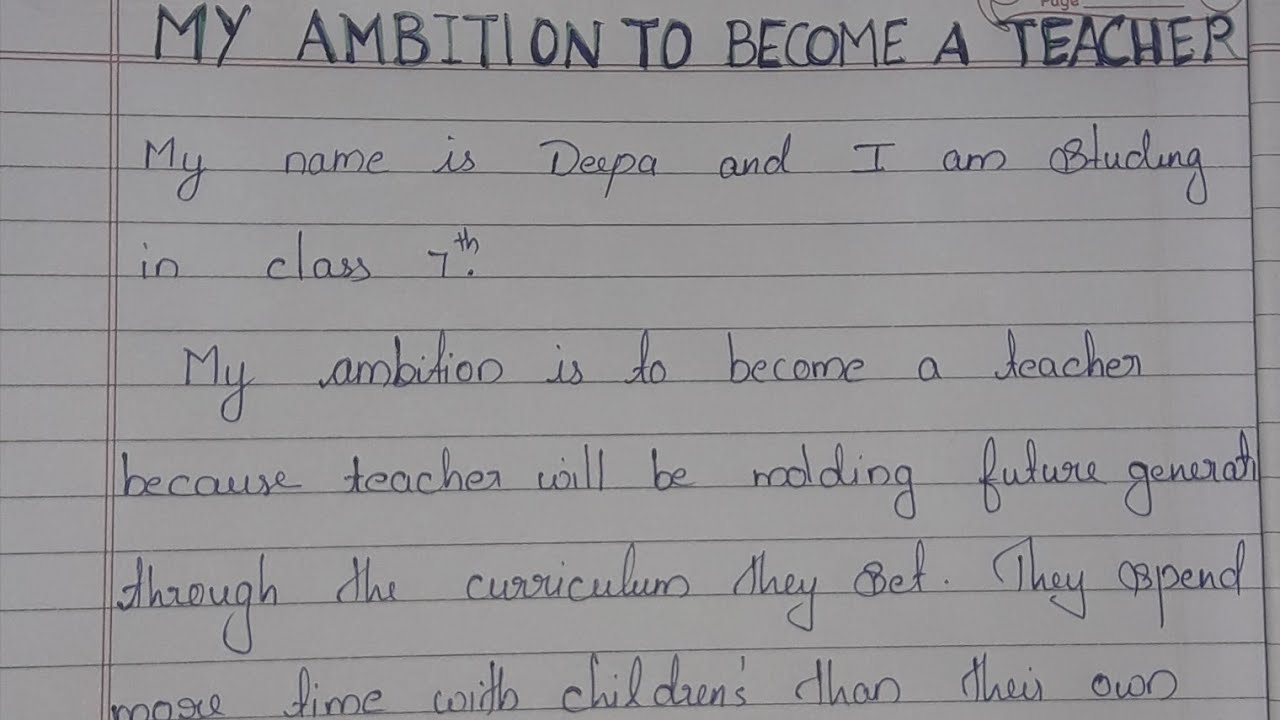 Page
MY AMBITION TO BECOME A TEACHER
My name is Deepa and I am studing
in class 7th.
My ambition is to become a teacher
because teacher will be molding future generati
through the curriculum they set. They spend
more time with children's than their own